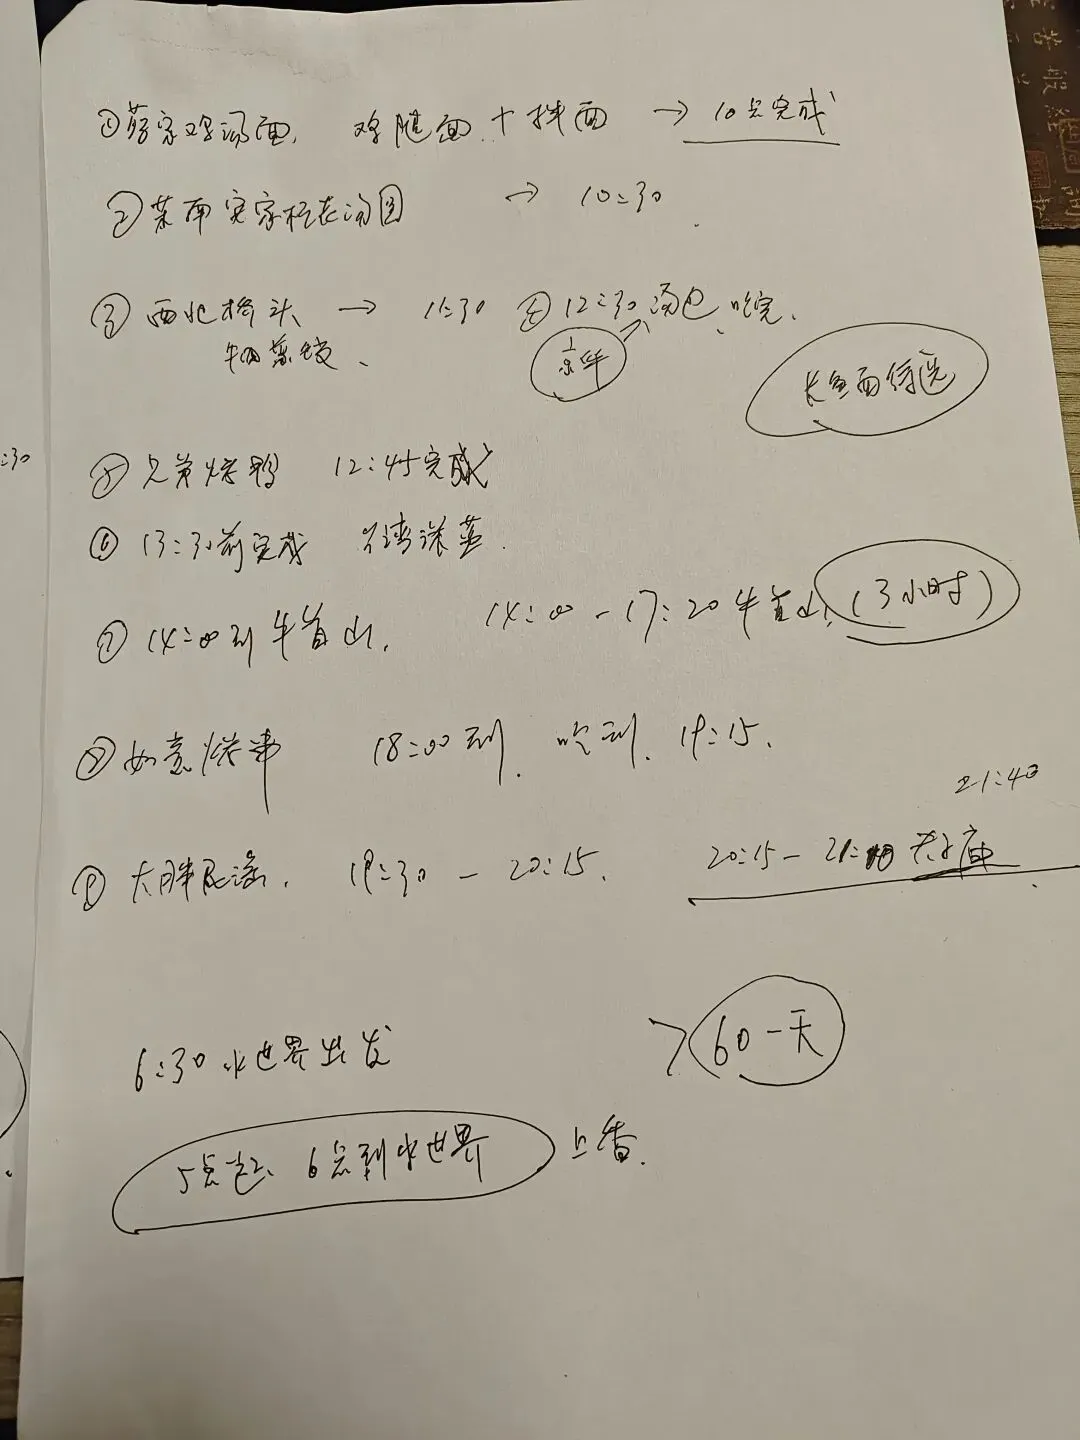 ①蒋家鸡汤面, 鸡腿面+拌面 → 10点完成
② 家桂花汤圆 → 10:30
③ 西北桥头 → 11:30 ④ 12:30 汤包 吃完.
牛肉蒸饺、
长鱼面待选
⑤ 兄弟烤鸭 12:45完成
⑥ 13:30前完成
⑦ 14:00到牛首山. 14:00-17:20牛首山 (3小时)
⑧ 如意烤串 18:00到 吃到 19:15.
21:40
⑨ 大胖 19:30-20:15. 20:15- 夫子庙
6:30水世界出发 >60一天
5点起、6点到水世界 上香.